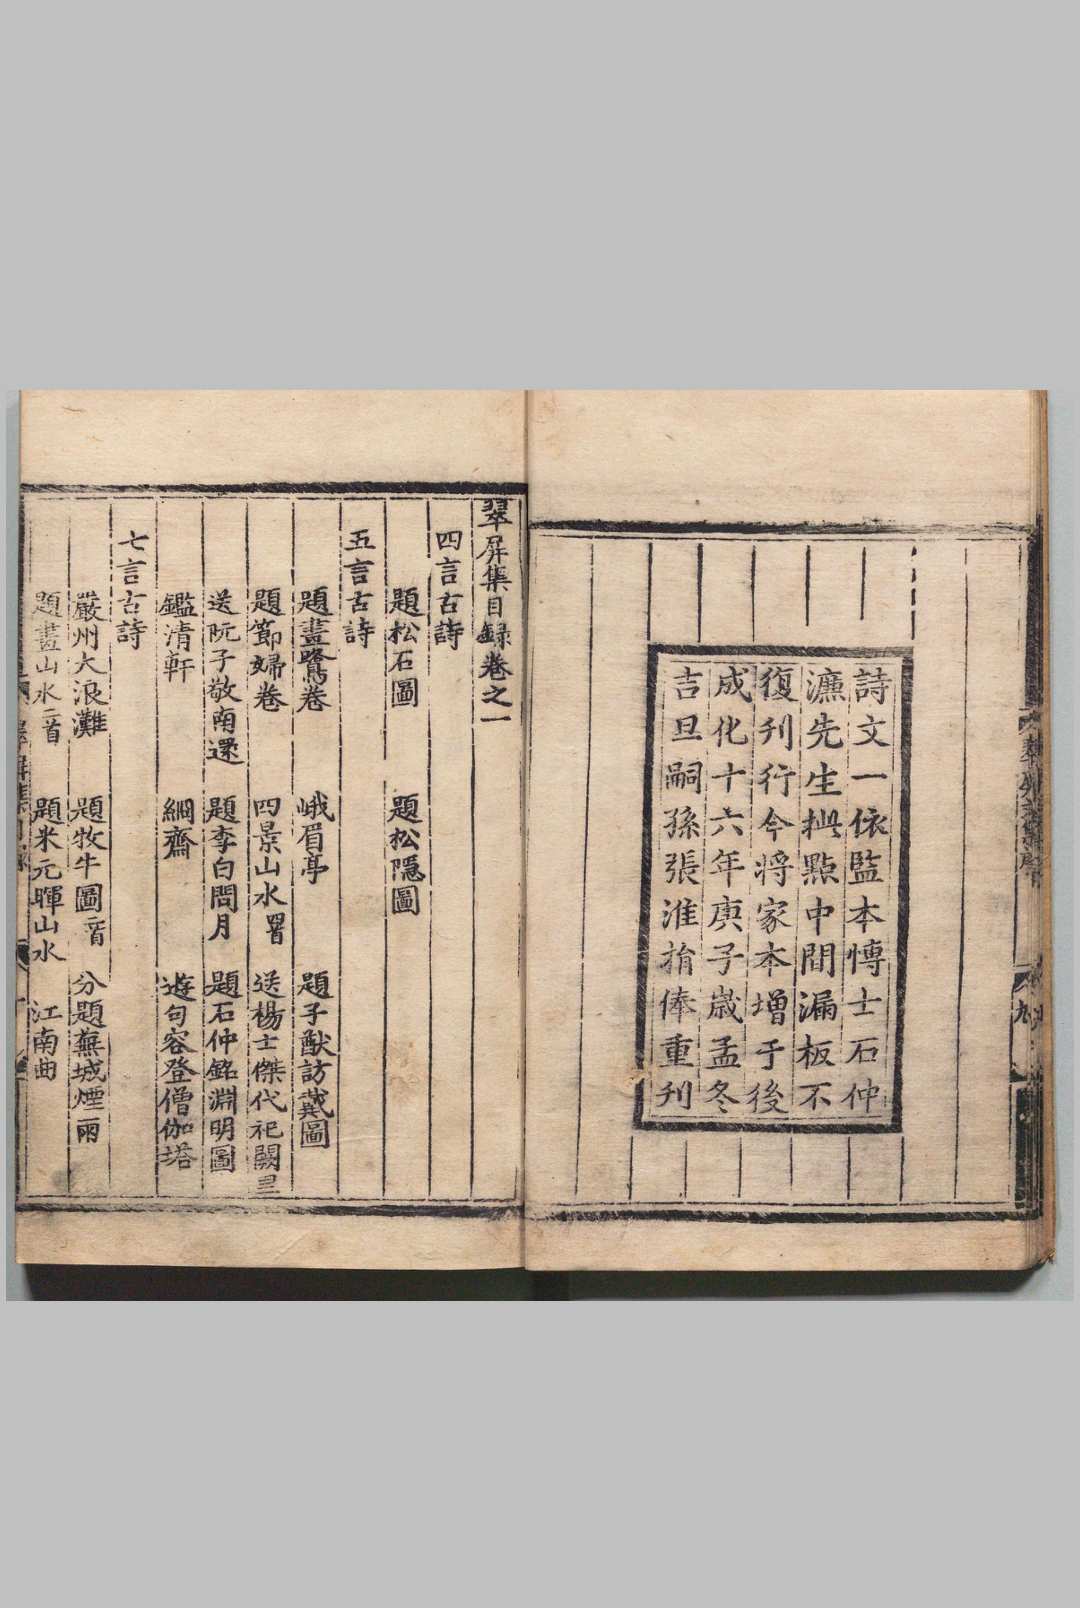 詩文一依監本愽士石仲
濂先生批點中間漏板不
復刋行今將家本增于後
成化十六年庚子歲孟冬
吉旦嗣孫張淮捐俸重刋
翠屏集目錄卷之一
四言古詩
題松石圖 題松隱圖
五言古詩
題畫鷺卷 峨眉亭 題子猷訪戴圖
題節婦卷 四景山水四首 送楊士傑代祀闕里
送阮子敬南還 題李白問月 題石仲銘淵明圖
鑑清軒 絅齋 遊句容登僧伽塔
七言古詩
嚴州大浪灘 題牧牛圖二首 分題蕪城煙雨
題畫山水二首 題米元暉山水 江南曲